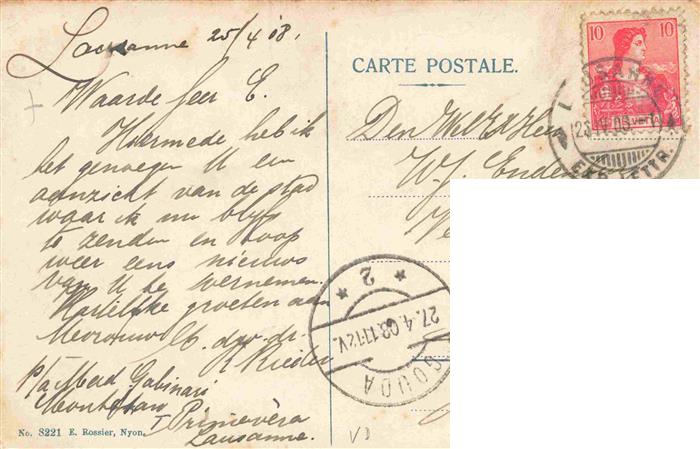 Lausanne 25/4 08.
Waarde Heer E.
Hiermede heb ik
het genoegen U een
aanzicht van de stad
waar ik nu blyf
te zenden en hoop
weer eens nieuws
van U te vernemen.
Hartelijke groeten aan
Mevrouw
p/a Mad. Gabinari
Primavèra
Lausanne.
No. 8221 E. Rossier, Nyon.
CARTE POSTALE.
Den
W. J.
10 10
HELVETIA
LAUSANNE
EXP. LETTR.
2
27.4.08.11-12V.
GOUDA